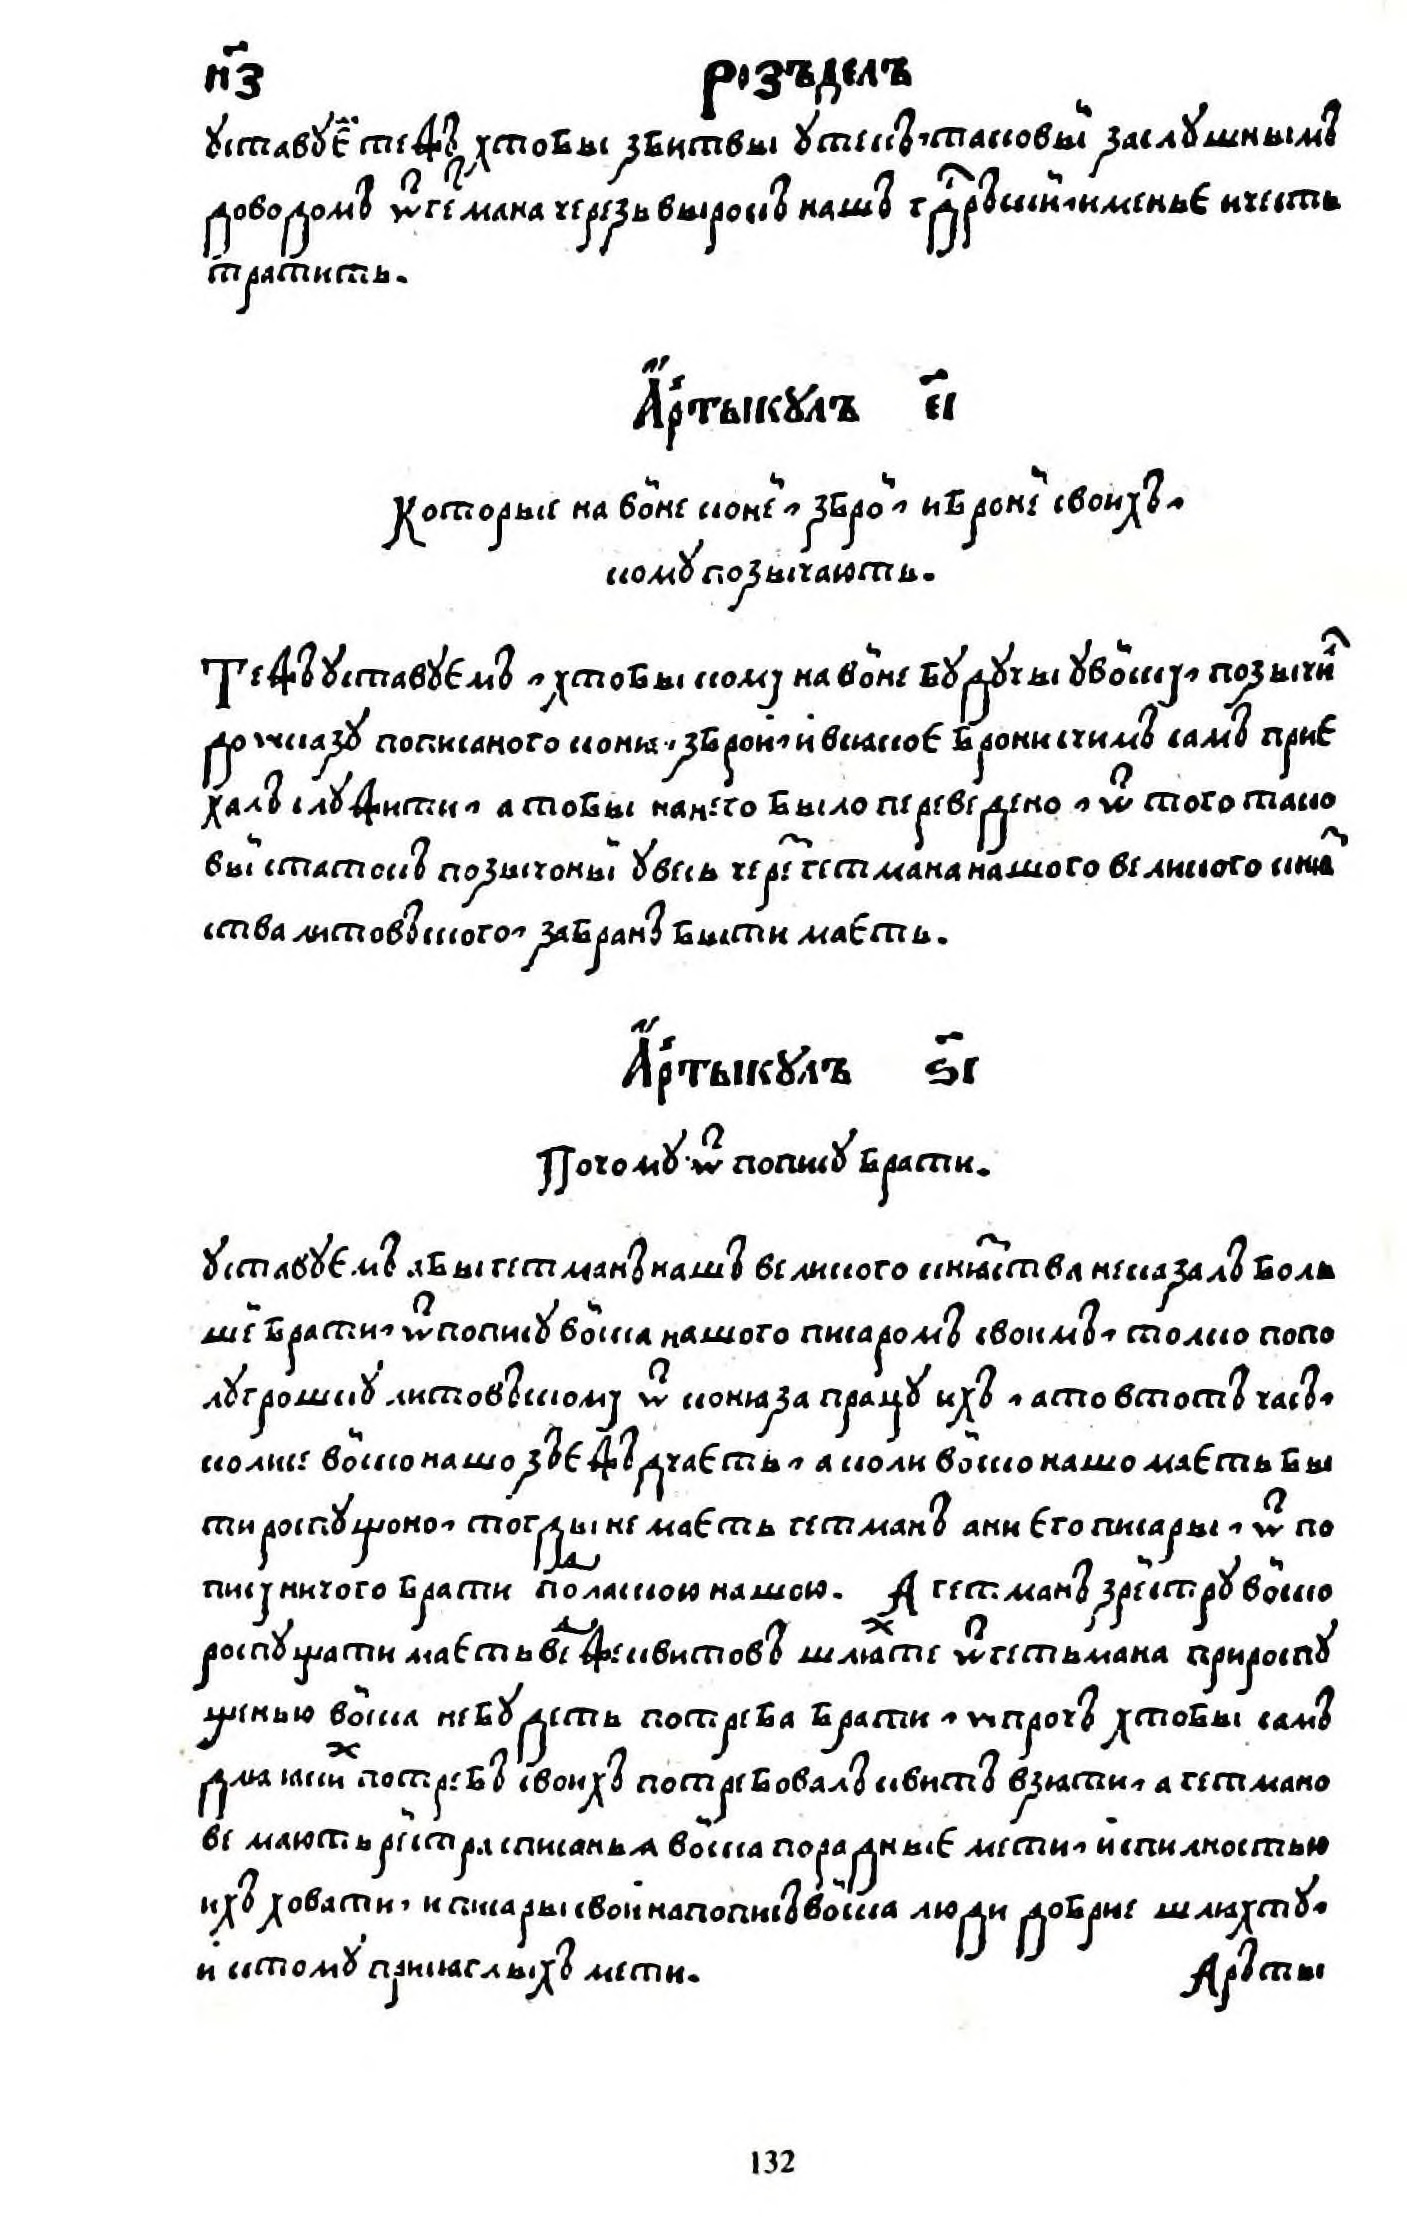 н҃з розъделъ
уставуе тежъ хтобы збитвы утекъ таковый заслушнымъ
доводомъ ѿ гемана черезъ вырокъ нашъ гдръский именье ичесть
тратить.
Артыкулъ е҃і
Которые на войне коней зброй иброней своихъ
кому позычають.
Тежъ уставуемъ хтобы кому на войне будучы увойску позычи
до указу пописаного коня зброи и всякое брони счимъ самъ прие
халъ служити а тобы нанего было переведено ѿ того тако
вый статокъ позычоный увесь чере гетмана нашого великого кня
ства литовъского забранъ быти маеть.
Артыкулъ ѕ҃і
Почому ѿ попису брати.
уставуемъ абы гетманъ нашъ великого кнства неказалъ боль
шей брати ѿ попису войска нашого писаромъ своимъ толко попо
лугрошку литовъскому ѿ коня за працу ихъ а то втотъ часъ
колисе войско нашо зъежъдчаеть а коли войско нашо маеть бы
ти роспущоно тогды не маеть гетманъ ани его писары ѿ по
пису ничого брати подласкою нашою. А гетманъ зреистру войско
роспущати маеть ведже квитовъ шляхте ѿ гетьмана прироспу
щенью войска небудеть потреба брати ѡпрочъ хтобы самъ
для яких потребъ своихъ потребовалъ квитъ взяти а гетмано
ве мають реистра списанья войска порадные мети и спилностью
ихъ ховати и писары свои напописъ войска люди добрые шляхту
и ктому присяглыхъ мети. Аръты
132